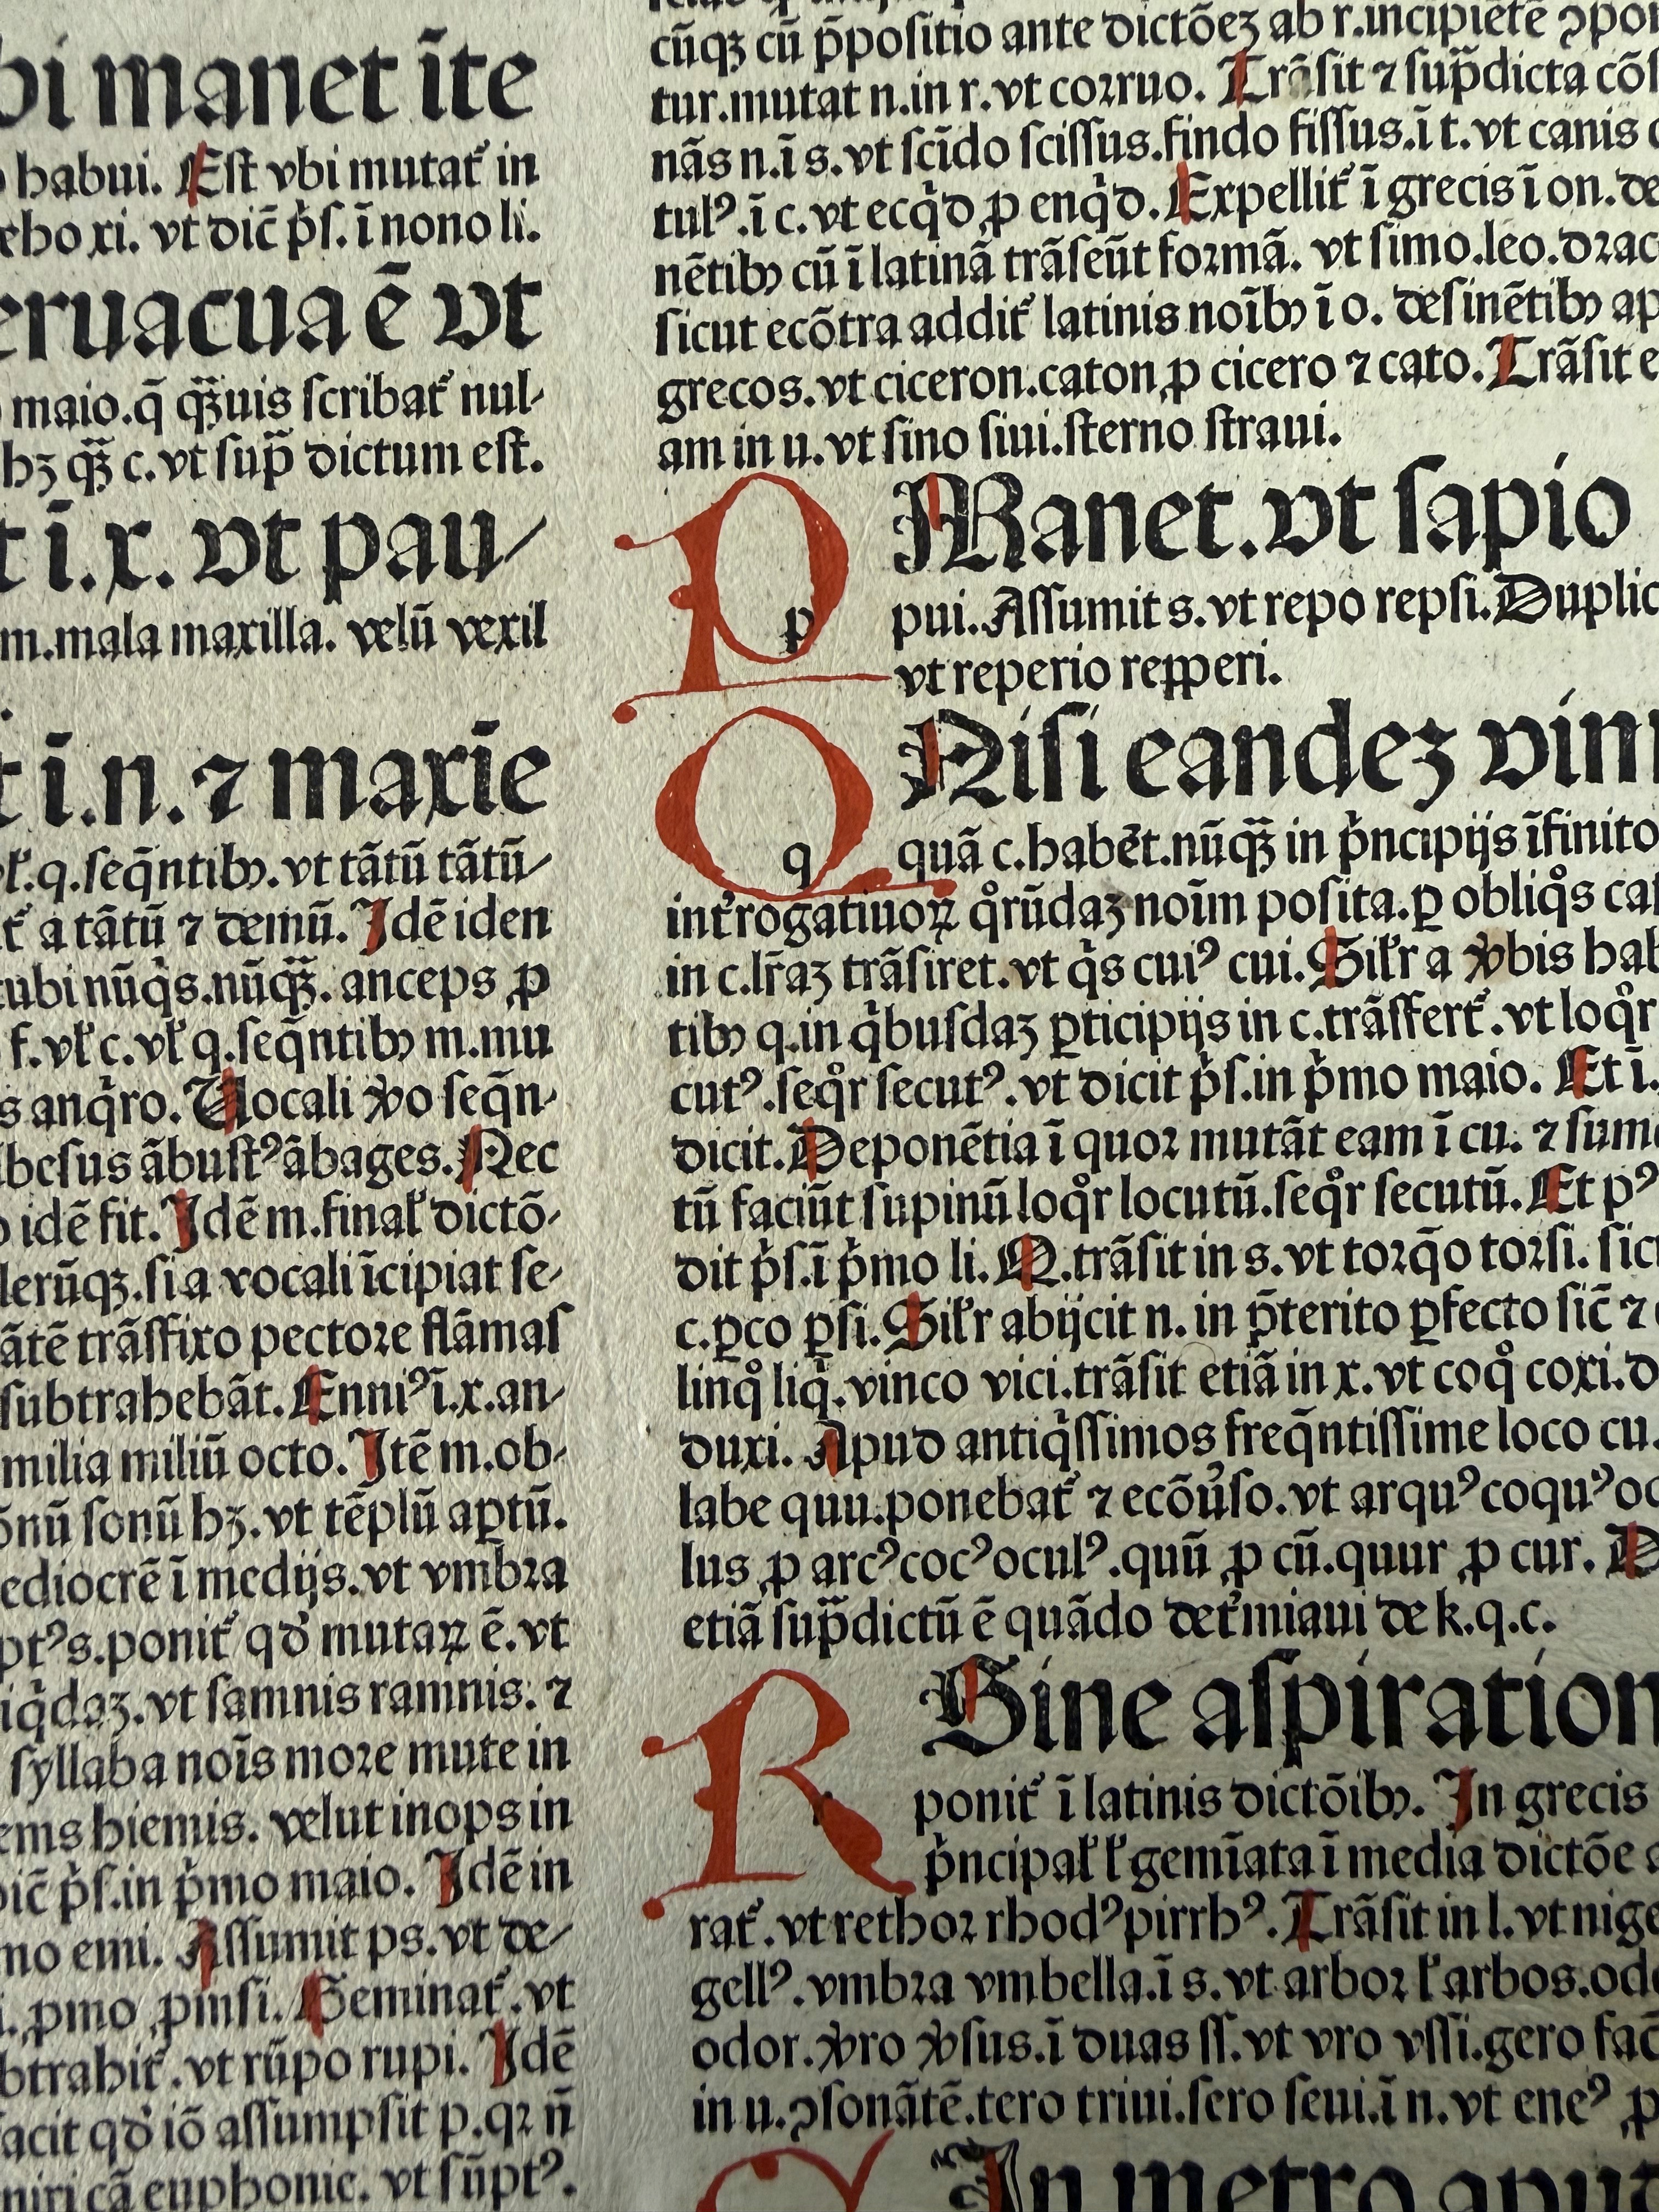 bi manet īte
habui. Est vbi mutat᷑ in
ebo xi. vt dic̄ p̓s. ī nono li.
eruacua ē vt
maio. q̄ qꝫ̄uis scribat᷑ nul-
bꝫ qꝫ̄ c. vt sup̄ dictum est.
t ī. x. vt pau/
m. mala maxilla. velū vexil
t ī. n. ⁊ maxīe
q. seq̄ntibꝰ. vt tātū tātū/
a tātū ⁊ demū. Idē iden
cubi nūq̓s. nūqꝫ̄. anceps ꝓ
f. vl̓ c. vl̓ q. seq̄ntibꝰ m. mu
s anq̓ro. Uocali ꝟo seq̄n-
besus ābustꝰ ābages. Nec
idē fit. Idē m. final̓ dictō-
lerūqꝫ. si a vocali īcipiat se-
ātē trāsfixo pectore flāmas
subtrahebāt. Enniꝰ ī. x. an-
milia miliū octo. Itē m. ob-
ōnū sonū hꝫ. vt tēplū aꝑtū.
ediocrē ī medijs. vt vmbra
ptꝰ s. ponit᷑ qđ mutaꝝ ē. vt
iq̓daꝫ. vt samnis ramnis. ⁊
syllaba noīs more mute in
ems hiemis. velut inops in
dic̄ p̓s. in p̓mo maio. Idē in
mo emi. Assumit ps. vt de/
ꝓmo ꝓmsi. Geminat᷑. vt
btrahit᷑. vt rūpo rupi. Idē
acit qđ iō assumpsit p. qꝛ n̄
cā euphonie. vt sūptꝰ.
cūqꝫ cū p̄positio ante dictōeꝫ ab r. incipiētē ꝯpo
tur. mutat n. in r. vt corruo. Trāsit ⁊ sup̄dicta cōs
nās n. ī s. vt scīdo scissus. findo fissus. ī t. vt canis c
tulꝰ. ī c. vt ecq̓d ꝓ enq̓d. Expellit᷑ ī grecis ī on. de
nētibꝰ cū ī latinā trāseūt formā. vt simo. leo. drac
sicut ecōtra addit᷑ latinis noībꝰ ī o. desinētibꝰ ap
grecos. vt ciceron. caton ꝓ cicero ⁊ cato. Trāsit e
am in u. vt sino siui. sterno straui.
P p Manet. vt sapio
pui. Assumit s. vt repo repsi. Duplic
vt reperio repperi.
Q q Nisi eandeꝫ vim
quā c. habēt. nūqꝫ̄ in p̓ncipijs īfinito
int᷑rogatiuoꝝ qͦrūdaꝫ noīm posita. ꝑ obliqͦs cas
in c. lr̄aꝫ trāsiret. vt q̓s cuiꝰ cui. Sil̓r a ꝟbis hab
tibꝰ q. in q̓busdaꝫ ꝑticipijs in c. trāsfert᷑. vt loqͦr
cutꝰ. seqͦr secutꝰ. vt dicit p̓s. in p̓mo maio. Et ī.
dicit. Deponētia ī quor mutāt eam ī cu. ⁊ sum
tū faciūt supinū loqͦr locutū. seqͦr secutū. Et pꝰ
dit p̓s. ī p̓mo li. Q. trāsit in s. vt torq̄o torsi. sic
c. ꝑco ꝑsi. Sil̓r abijcit n. in p̄terito ꝑfecto sic̄ ⁊
linqͦ liq̓. vinco vici. trāsit etiā in x. vt coqͦ coxi. d
duxi. Apud antiq̓ssimos freq̄ntissime loco cu.
labe quu. ponebat᷑ ⁊ ecōu̓so. vt arquꝰ coquꝰ oc
lus ꝓ arcꝰ cocꝰ oculꝰ. quū ꝓ cū. quur ꝓ cur. D
etiā sup̄dictū ē quādo det᷑miaui de k. q. c.
R r Sine aspiration
ponit᷑ ī latinis dictōibꝰ. In grecis
p̓ncipal̓ l̓ gemīata ī media dictōe a
rat᷑. vt rethor rhodꝰ pirrhꝰ. Trāsit in l. vt nige
gellꝰ. vmbra vmbella. ī s. vt arbor l̓ arbos. odo
odor. ꝟro ꝟsus. ī duas ss. vt vro vssi. gero fac̄
in u. ꝯsonātē. tero triui. sero seui. ī n. vt eneꝰ ꝓ
In metro apud